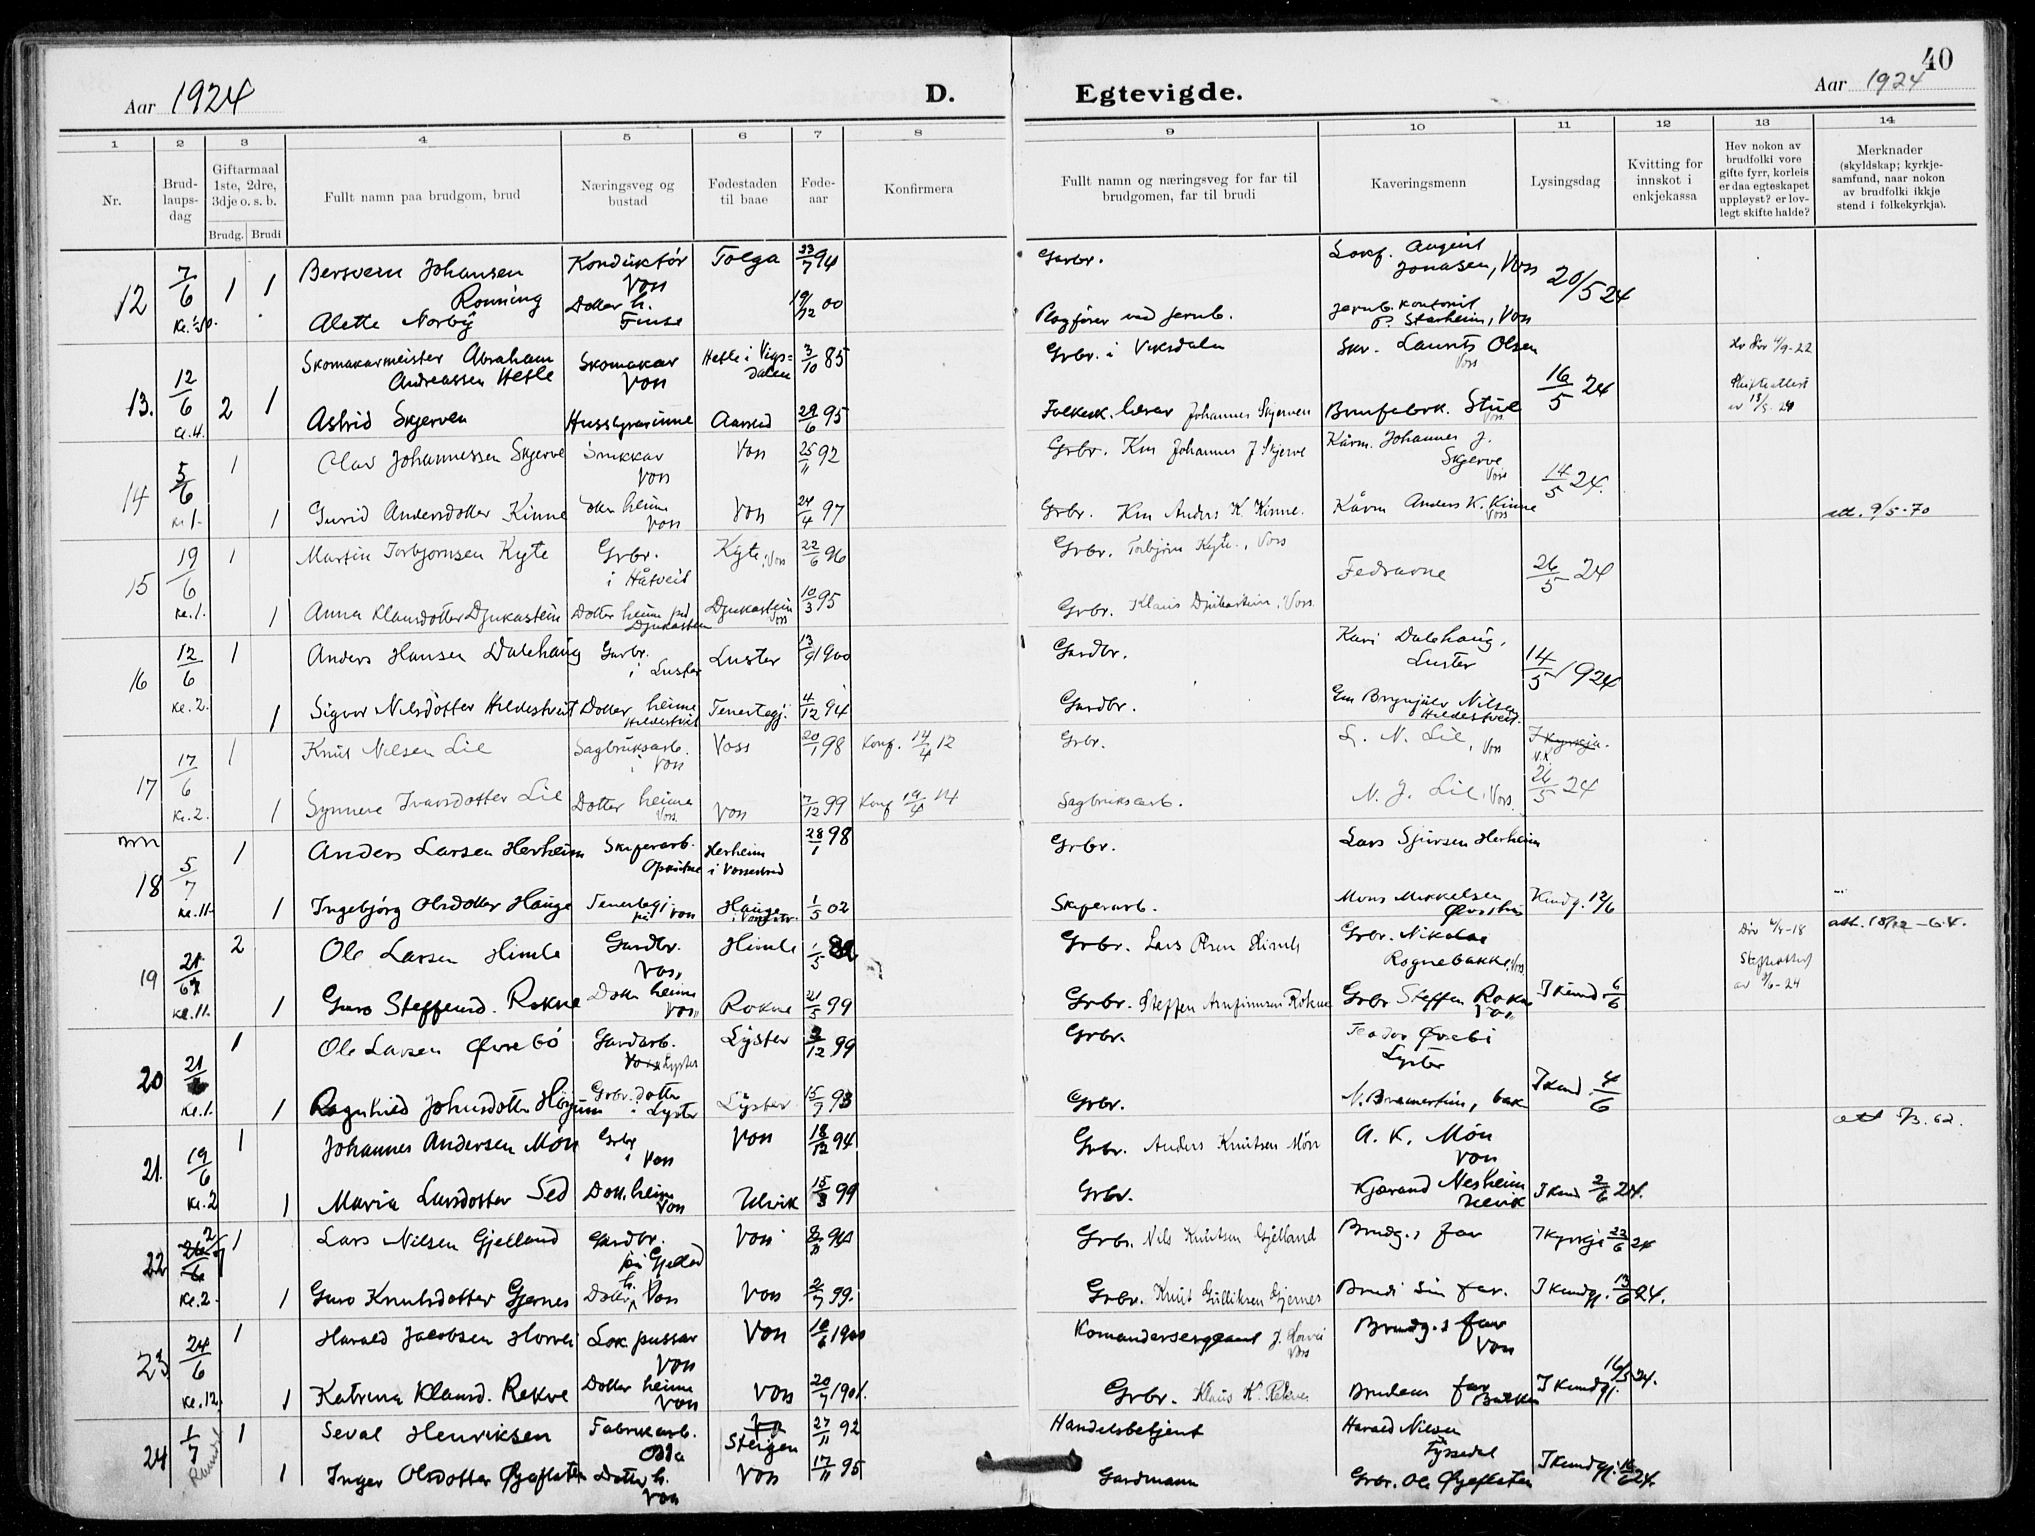 40
Aar 1924
D.
Egtevigde.
Aar 1924
1 2 3 4 5 6 7 8
9 10 11 12 13 14
Nr.
Brud-
laups-
dag
Giftarmaal
1ste, 2dre,
3dje o. s. b.
Brudg. Brudi
Fullt namn paa brudgom, brud
Næringsveg og
bustad
Fødestaden
til baae
Føde-
aar
Konfirmera
Fullt namn og næringsveg for far til
brudgomen, far til brudi
Kaveringsmenn
Lysingsdag
Kvitting for
innskot i
enkjekassa
Hev nokon av
brudfolki vore
gifte fyrr, korleis
er daa egteskapet
uppløyst? er lov-
legt skifte halde?
Merknader
(skyldskap; kyrkje-
samfund, naar nokon
av brudfolki ikkje
stend i folkekyrkja).
12 7/6 1 1 Bersvein Johansen Konduktør Tolga 23/7 94 Garbr. Lokf. August
Rønning Voss Jonasen, Voss 20/5 24
Alette Norby Dotter h. 19/12 00 jernb. kontorist
Finse Plogfører ved jernb. P. Starheim, Voss
13. 12/6 2 1 Skomakarmeister Abraham Skomakar Hetle i Vigs= 3/10 85 Grbr. i Viksdalen Skr. Laurits Olsen
Andreassen Hetle Voss dalen Voss 16/5 24
kl. 4. Astrid Skjerven Husstyrarinne Aarnes 29/6 95 Folkesk. lærar Johannes Skjerven Brufabrk. Stue
Voss
14 5/6 1 Olav Johannessen Skjerve Snikkar Voss 25/11 92 Grbr. Km Johannes J Skjerve Kårm. Johannes J.
Voss Skjerve
Voss 14/5 24.
kl 1. 1 Gurid Andersdotter Kinne dotter heime Voss 24/4 97 Grbr. Km Anders K. Kinne. Kårm Anders K. Kinne
Voss Voss att. 9/5-70
15 19/6 1 Martin Torbjørnsen Kyte Grbr. Kyte, Voss 22/6 96 Grbr. Torbjørn Kyte, Voss
i Håtveit Fedrarne 26/5 24
kl. 1. 1 Anna Klausdotter Djukastein Dotter heime på Djukastein 10/3 95 Grbr. Klaus Djukastein, Voss.
Djukastein Voss
16 12/6 1 Anders Hansen Dalehaug Garbr. Luster 13/9 1900 Gardbr. Kari Dalehaug,
i Luster Luster 14/5 1924
kl. 2. 1 Sigvor Nilsdotter Hildestveit Dotter heime Tenestegj. 4/12 94 Gardbr. Gm Brynjulv Nilsen
Hildestveit Hildestveit.
17 17/6 1 Knut Nilsen Lie Sagbruksarb. Voss 20/1 98 Konf. 14/4 12 Grbr. L. N. Lie, Voss I kyrkja.
i Voss
kl. 2. 1 Synneve Ivarsdotter Lie Dotter heime Voss 7/12 99 Konf 19/4 14 Sagbruksarb. N. J. Lie, Voss. 26/5 24
Voss
18 5/7 1 Anders Larsen Herheim Skiferarb. Herheim 28/1 98 Grbr. Lars Sjursen Herheim
i Vossestrand
kl. 11. 1 Ingebjørg Olsdotter Hauge Tenestegj. Hauge 1/5 02 Skiferarb. Mons Mikkelsen Kundg. 12/6
på Voss
19 21/6 2 Ole Larsen Himle Gardbr. Himle 1/5 82 Grbr. Lars Olsen Himle Grbr. Nikolai att. 18/12-64.
Voss, Rognebakke, Voss.
kl. 11. 1 Guro Steffensd. Rokne Dotter heime Rokne 21/5 99 Grbr. Steffen Arnfinnsen Rokne Grbr Steffen Rokne I kund. 6/6
Voss Voss
20 21/6 1 Ole Larsen Øvrebø Gardarb. Lyster 2/12 99 Grbr. Teodor Øvrebø
Voss Lyster Lyster
kl. 1. 1 Ragnhild Johnsdotter Høyum Grbr. dotter Lyster 15/9 93 Grbr. I kund 4/6
i Lyster att 5/3. 62.
21. 19/6 1 Johannes Andersen Møn Grbr Voss 18/12 94 Grbr. Anders Knutsen Møn A. K. Møn
i Voss Voss
kl. 2 1 Maria Larsdotter Sed Dott. heime Ulvik 15/3 99 Grbr. Kjærand Nesheim I kund 2/6 24.
Voss Ulvik
22 2/7 1 Lars Nilsen Gjelland Gardbr. Voss Grbr. Nils Knutsen Gjelland Brudg.s far I kyrkje 22/6 24
på Gjelland
kl. 2. 1 Guro Knutsdotter Gjernes Dotter h. Voss Voss 2/7 99. Grbr. Knut Gulliksen Gjernes Brudi sin far. I kundgj. 13/6 24.
23 24/6 1 Harald Jacobsen Horvei Lok. pussar Voss 10/6 1900 Komandersergeant J. Horvei Brudg.s far
Voss Voss Voss
kl. 12. 1 Katrina Klausd. Rekve Dotter heime Voss 20/7 1901. Grbr. Klaus K. Rekve Brudens far I kundgj. 16/5 24.
Voss
24 1/7 1 Seval Henriksen Fabrikarb. Steigen 27/11 92 Handelsbetjent Harald Nilsen
Oslo Tyssedal
1 Inger Olsdotter Øgjeflaten Dotter h. Voss 17/11 95 Gardmann Grbr. Ole Øyeflaten I kundgj. 16/6 24.
Voss